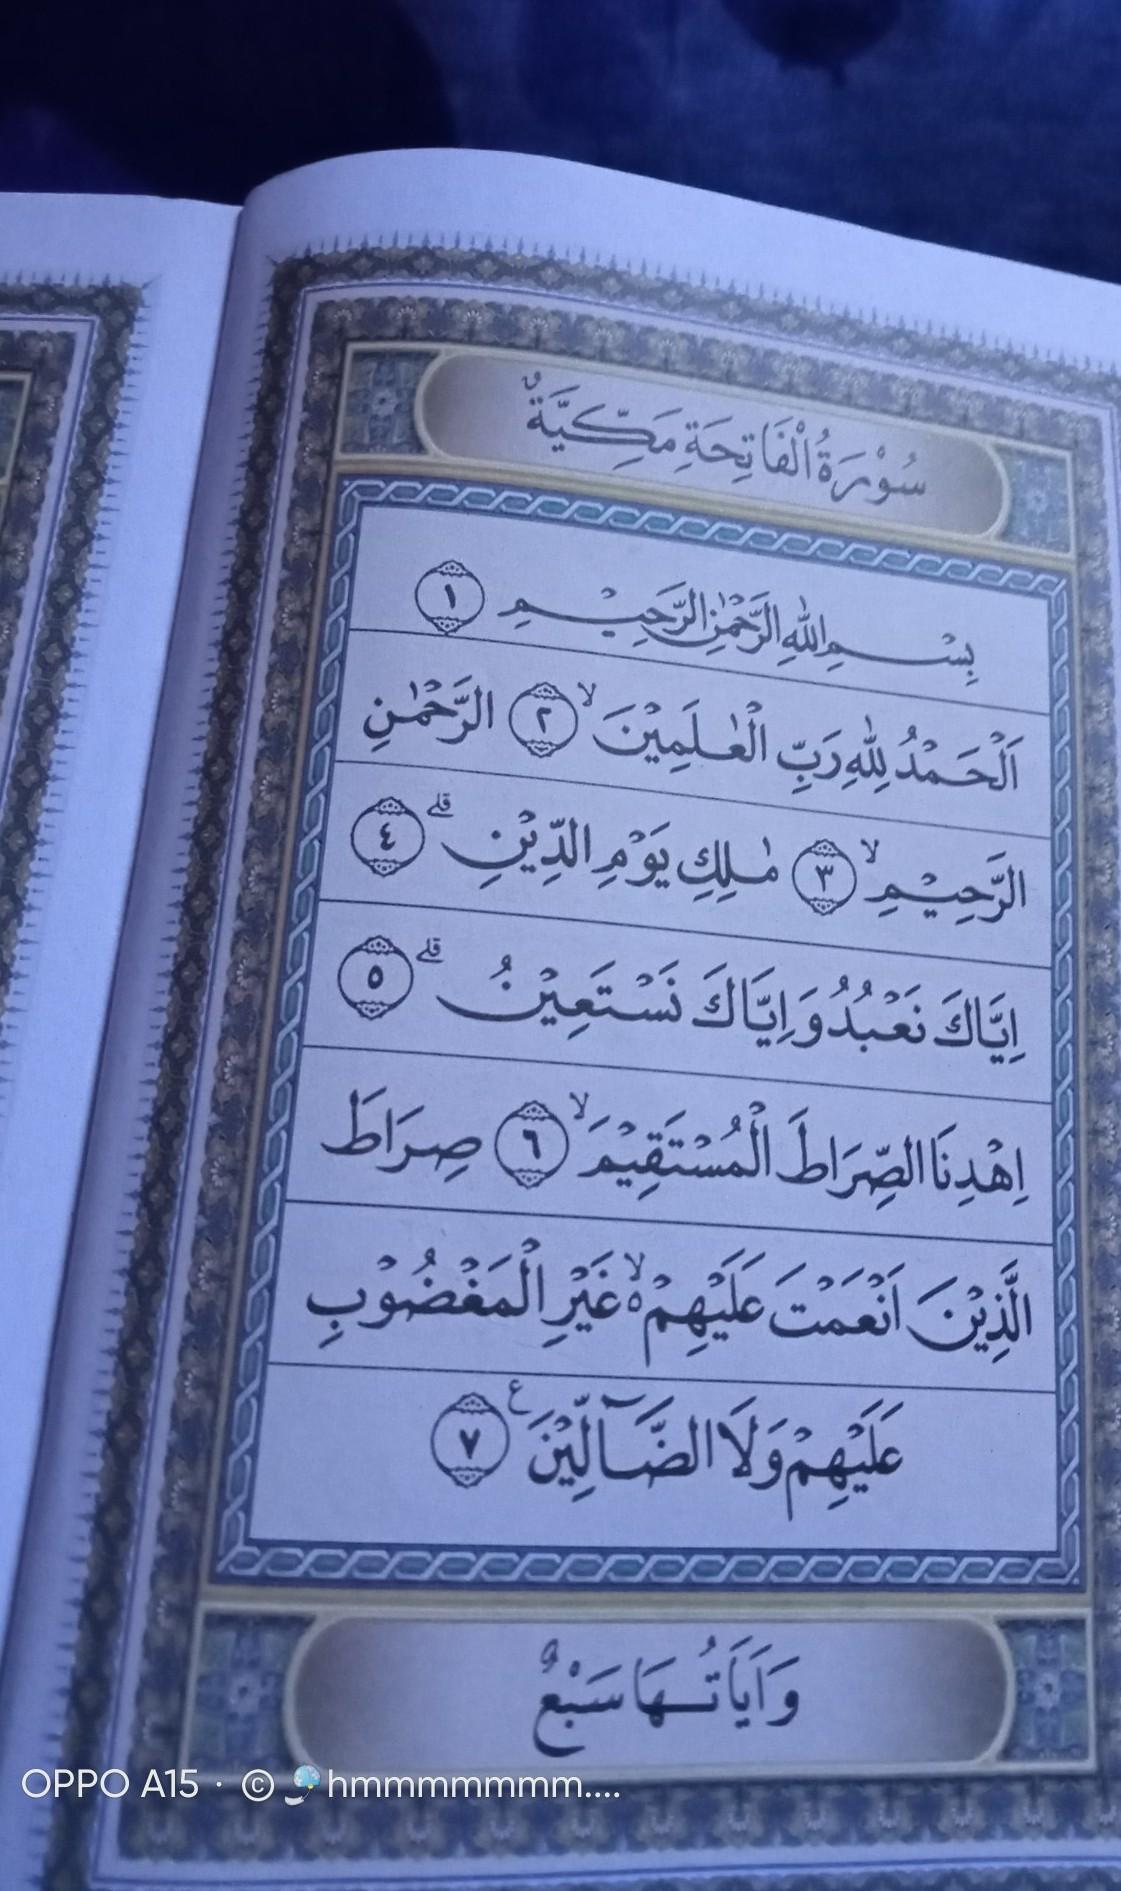 سُوْرَةُ الْفَاتِحَةِ مَكِّيَّةٌ
بِسْمِ اللّٰهِ الرَّحْمٰنِ الرَّحِيْمِ ١
اَلْحَمْدُ لِلّٰهِ رَبِّ الْعٰلَمِيْنَۙ ٢ الرَّحْمٰنِ
الرَّحِيْمِۙ ٣ مٰلِكِ يَوْمِ الدِّيْنِۗ ٤
اِيَّاكَ نَعْبُدُ وَاِيَّاكَ نَسْتَعِيْنُۗ ٥
اِهْدِنَا الصِّرَاطَ الْمُسْتَقِيْمَۙ ٦ صِرَاطَ
الَّذِيْنَ اَنْعَمْتَ عَلَيْهِمْ ەۙ غَيْرِ الْمَغْضُوْبِ
عَلَيْهِمْ وَلَا الضَّاۤلِّيْنَ ع ٧
وَاٰيَاتُهَا سَبْعٌ
OPPO A15 · © hmmmmmmmm....